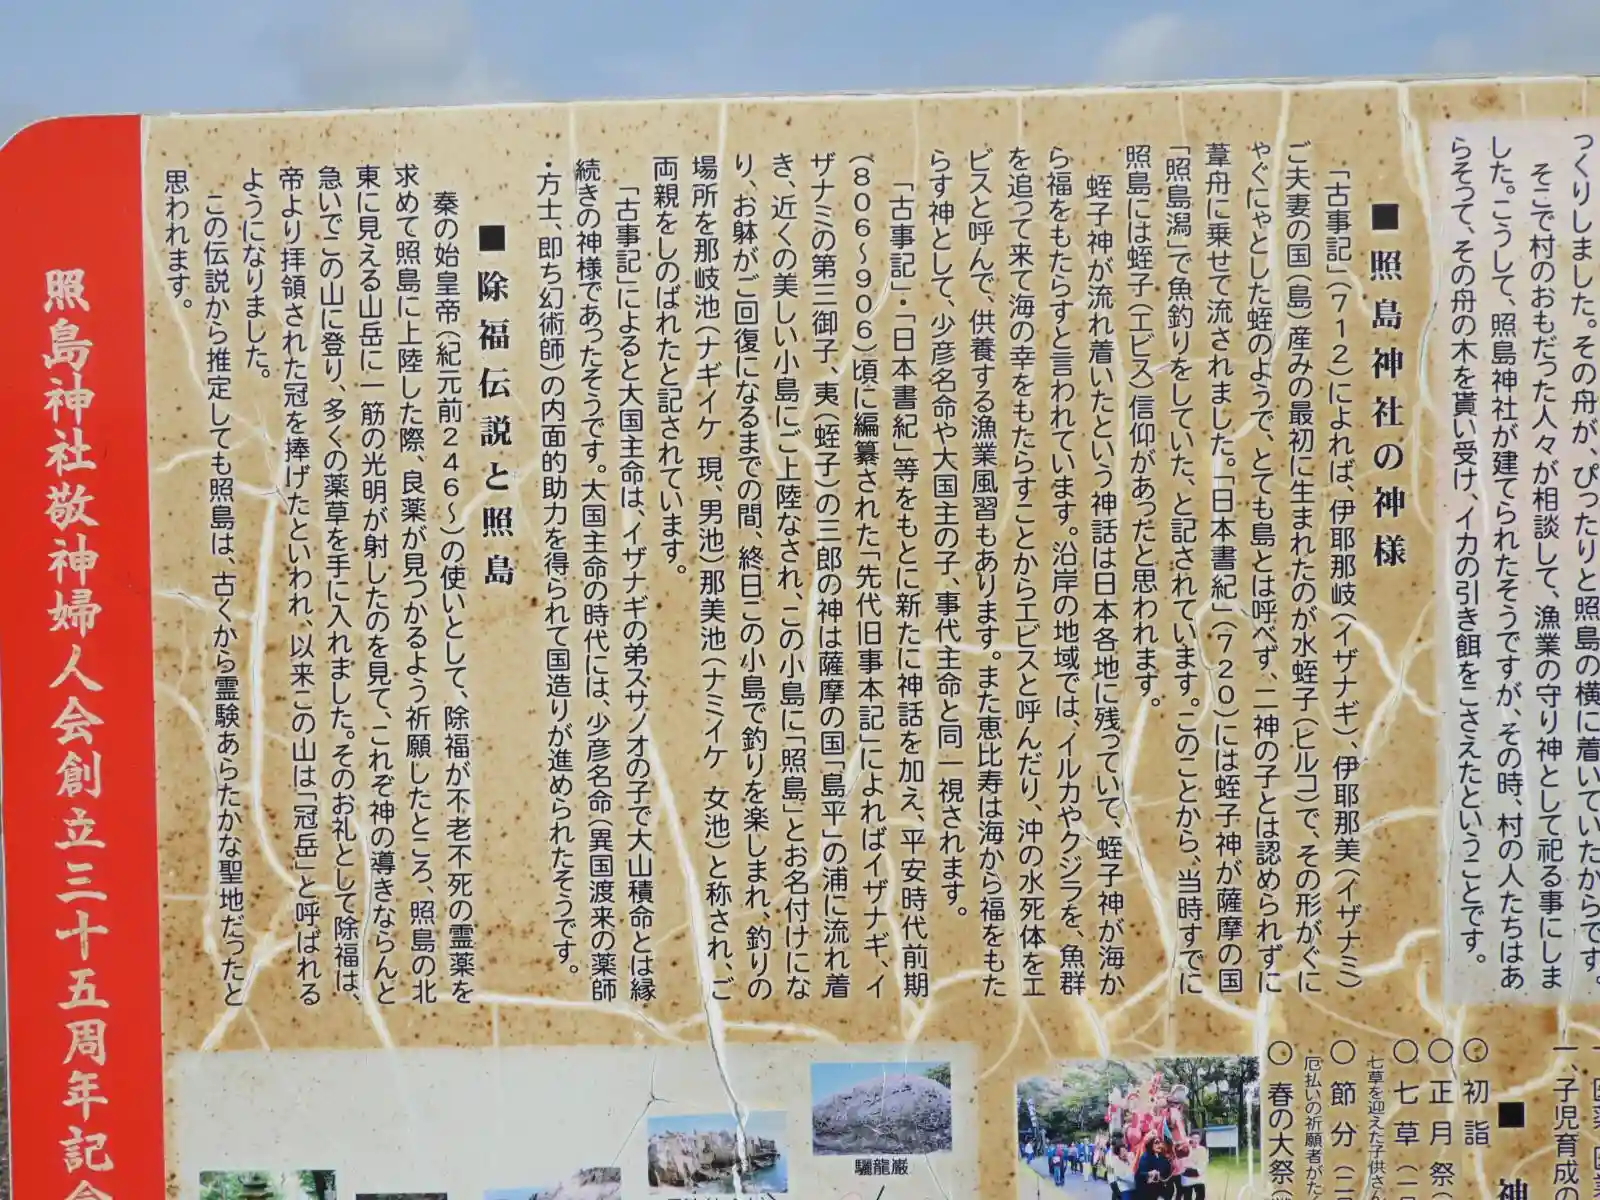 っくりしました。その舟が、ぴったりと照島の横に着いていたからです。
そこで村のおもだった人々が相談して、漁業の守り神として祀る事にしま
した。こうして、照島神社が建てられたそうですが、その時、村の人たちはあ
らそって、その舟の木を貰い受け、イカの引き餌をこさえたということです。
■照島神社の神様
「古事記」（７１２）によれば、伊耶那岐（イザナギ）、伊耶那美（イザナミ）
ご夫妻の国（島）産みの最初に生まれたのが水蛭子（ヒルコ）で、その形がぐに
ゃぐにゃとした蛭のようで、とても島とは呼べず、二神の子とは認められずに
葦舟に乗せて流されました。「日本書紀」（７２０）には蛭子神が薩摩の国
「照島潟」で魚釣りをしていた、と記されています。このことから、当時すでに
照島には蛭子（エビス）信仰があったと思われます。
蛭子神が流れ着いたという神話は日本各地に残っていて、蛭子神が海か
ら福をもたらすと言われています。沿岸の地域では、イルカやクジラを、魚群
を追って来て海の幸をもたらすことからエビスと呼んだり、沖の水死体をエ
ビスと呼んで、供養する漁業風習もあります。また恵比寿は海から福をもた
らす神として、少彦名命や大国主の子、事代主命と同一視されます。
「古事記」・「日本書紀」等をもとに新たに神話を加え、平安時代前期
（８０６〜９０６）頃に編纂された「先代旧事本記」によればイザナギ、イ
ザナミの第三御子、夷（蛭子）の三郎の神は薩摩の国「島平」の浦に流れ着
き、近くの美しい小島にご上陸なされ、この小島に「照島」とお名付けにな
り、お躰がご回復になるまでの間、終日この小島で釣りを楽しまれ、釣りの
場所を那岐池（ナギイケ 現、男池）那美池（ナミイケ 女池）と称され、ご
両親をしのばれたと記されています。
「古事記」によると大国主命は、イザナギの弟スサノオの子で大山積命とは縁
続きの神様であったそうです。大国主命の時代には、少彦名命（異国渡来の薬師
・方士、即ち幻術師）の内面的助力を得られて国造りが進められたそうです。
■除福伝説と照島
秦の始皇帝（紀元前２４６〜）の使いとして、除福が不老不死の霊薬を
求めて照島に上陸した際、良薬が見つかるよう祈願したところ、照島の北
東に見える山岳に一筋の光明が射したのを見て、これぞ神の導きならんと
急いでこの山に登り、多くの薬草を手に入れました。そのお礼として除福は、
帝より拝領された冠を捧げたといわれ、以来この山は「冠岳」と呼ばれる
ようになりました。
この伝説から推定しても照島は、古くから霊験あらたかな聖地だったと
思われます。
照島神社敬神婦人会創立三十五周年記
一、子児育成の
■神
○初詣
○正月祭
○七草（一
七草を迎えた子供さん
○節分（二
厄払いの祈願者がた
○春の大祭
驪龍巌